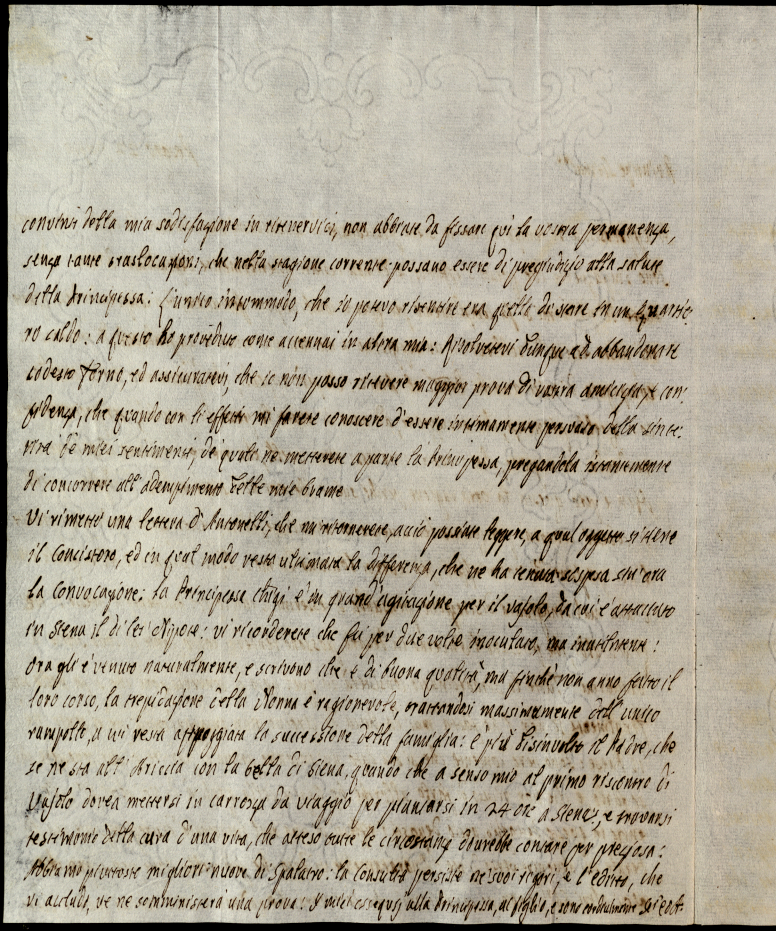 convinti della mia sodisfazione in ritenervici, non abbiate da fissare qui la vostra permanenza,
senza tante traslocazioni, che nella stagione corrente possano essere di pregiudizio alla salute
della Principessa: L'unico incommodo, che io potevo risentire era quello di stare in un Quartie-
ro caldo: a questo ho proveduto come accennai in altra mia: Risolvetevi dunque ad abbandonare
codesto Forno, ed assicuratevi, che io non posso ricevere maggior prova di vostra amicizia, e con-
fidenza, che quando con li effetti mi farete conoscere d'essere intimamente persuaso della since-
rità de miei sentimenti, de quali ne metterete a parte la Principessa, pregandola istantemente
di concorrere all'adempimento delle mie brame
Vi rimetto una lettera d'Antonelli, che mi ritornerete, acciò possiate leggere, a qual oggetto si tiene
il Concistoro, ed in qual modo resta ultimata la differenza, che ne ha tenuta sospesa sin'ora
la Convocazione: La Principessa Chigi è in grand'agitazione per il vajolo, da cui è attaccato
in Siena il di lei Nipote: vi ricorderete che fu per due volte inoculato, ma inutilmente:
Ora gli è venuto naturalmente, e scrivono che è di buona qualità, ma finchè non anno fatto il
loro corso, la trepidazione della Nonna è ragionevole, trattandosi massimamente dell'unico
rampollo, a cui resta appoggiata la successione della famiglia: è più disinvolto il Padre, che
se ne sta all'Ariccia con la bella di Siena, quando che a senso mio al primo riscontro di
Vajolo dovea mettersi in carrozza da viaggio per plantarsi in 24 ore a Siena, e trovarsi
testimonio della cura d'una vita, che atteso tutte le circostanze dovrebbe contare per preziosa:
Abbiamo piuttosto migliori nuove di Spalatro: la Consulta persiste ne suoi rigori, e l'editto, che
vi accludo, ve ne somministerà una prova: I miei ossequj alla Principessa, al figlio, e sono cordialmente